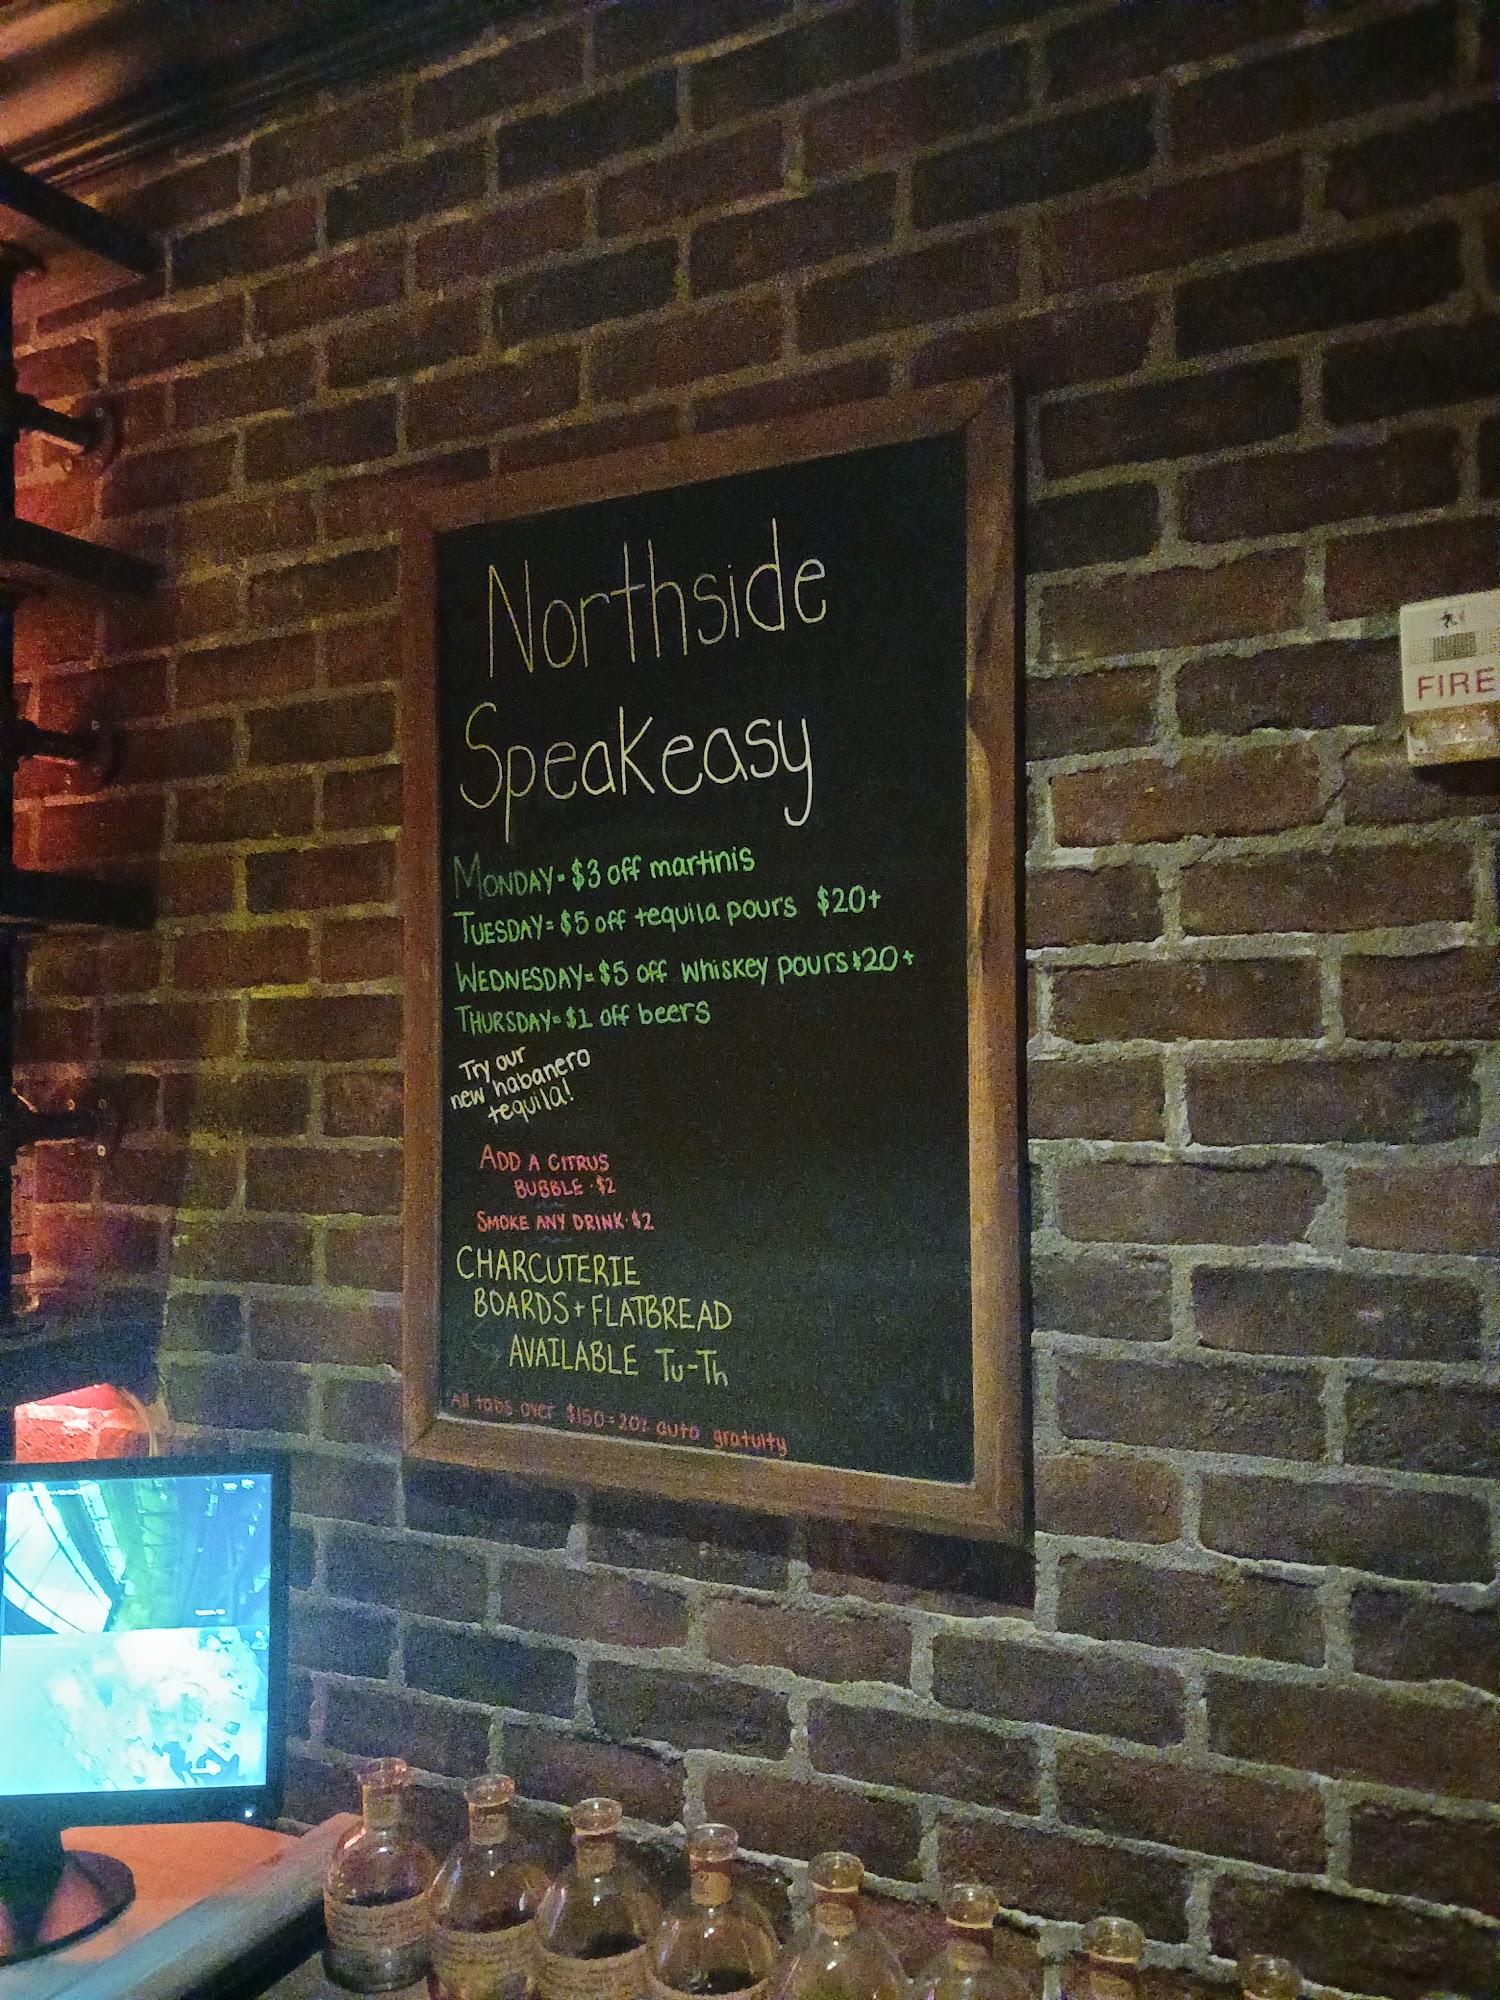 Northside
Speakeasy
MONDAY= $3 off martinis
TUESDAY= $5 off tequila pours $20+
WEDNESDAY= $5 off whiskey pours $20+
THURSDAY= $1 off beers
Try our
new habanero
tequila!
ADD A CITRUS
BUBBLE · $2
SMOKE ANY DRINK · $2
CHARCUTERIE
BOARDS + FLATBREAD
AVAILABLE Tu-Th
All tabs over $150 = 20% auto gratuity
FIRE